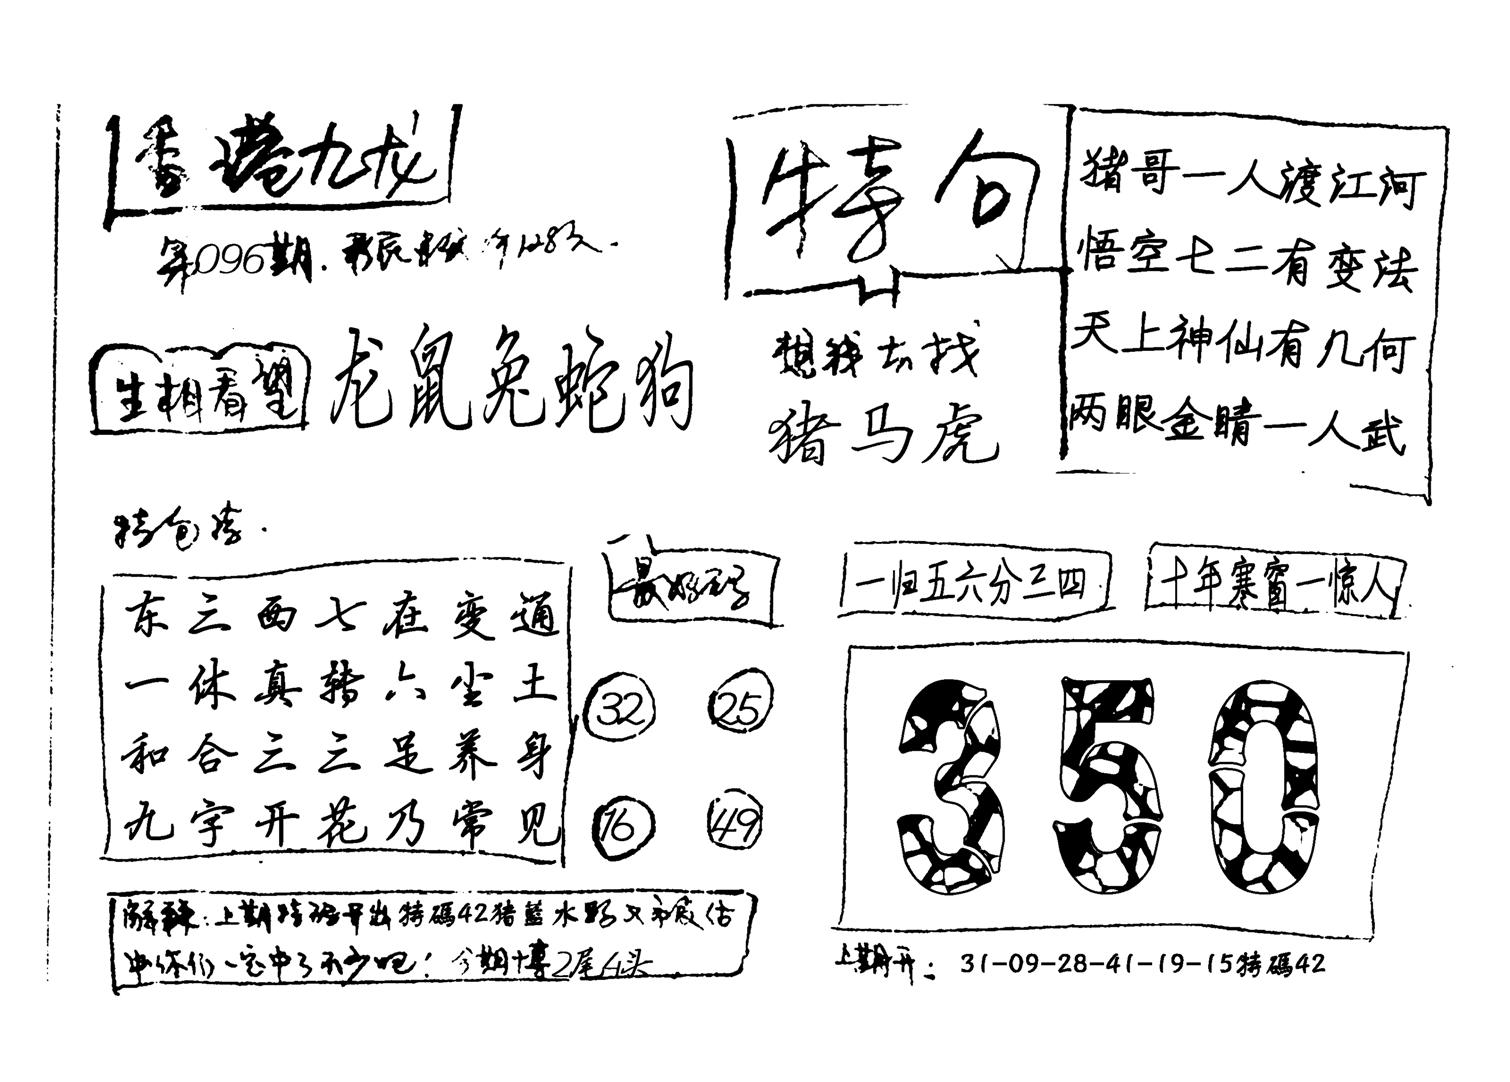 香港九龙
第096期.
生相看望
龙鼠兔蛇狗
特句
想我去找
猪马虎
猪哥一人渡江河
悟空七二有变法
天上神仙有几何
两眼金睛一人武
特包
东三西七在变通
一休真转六尘土
和合三三足养身
九字开花乃常见
最好码
32
25
16
49
一归五六分三四
十年寒窗一惊人
350
解释:上期特码开出特碼42猪藍水
你们一定中了不少吧!今期博2尾4头
上期开: 31-09-28-41-19-15特碼42